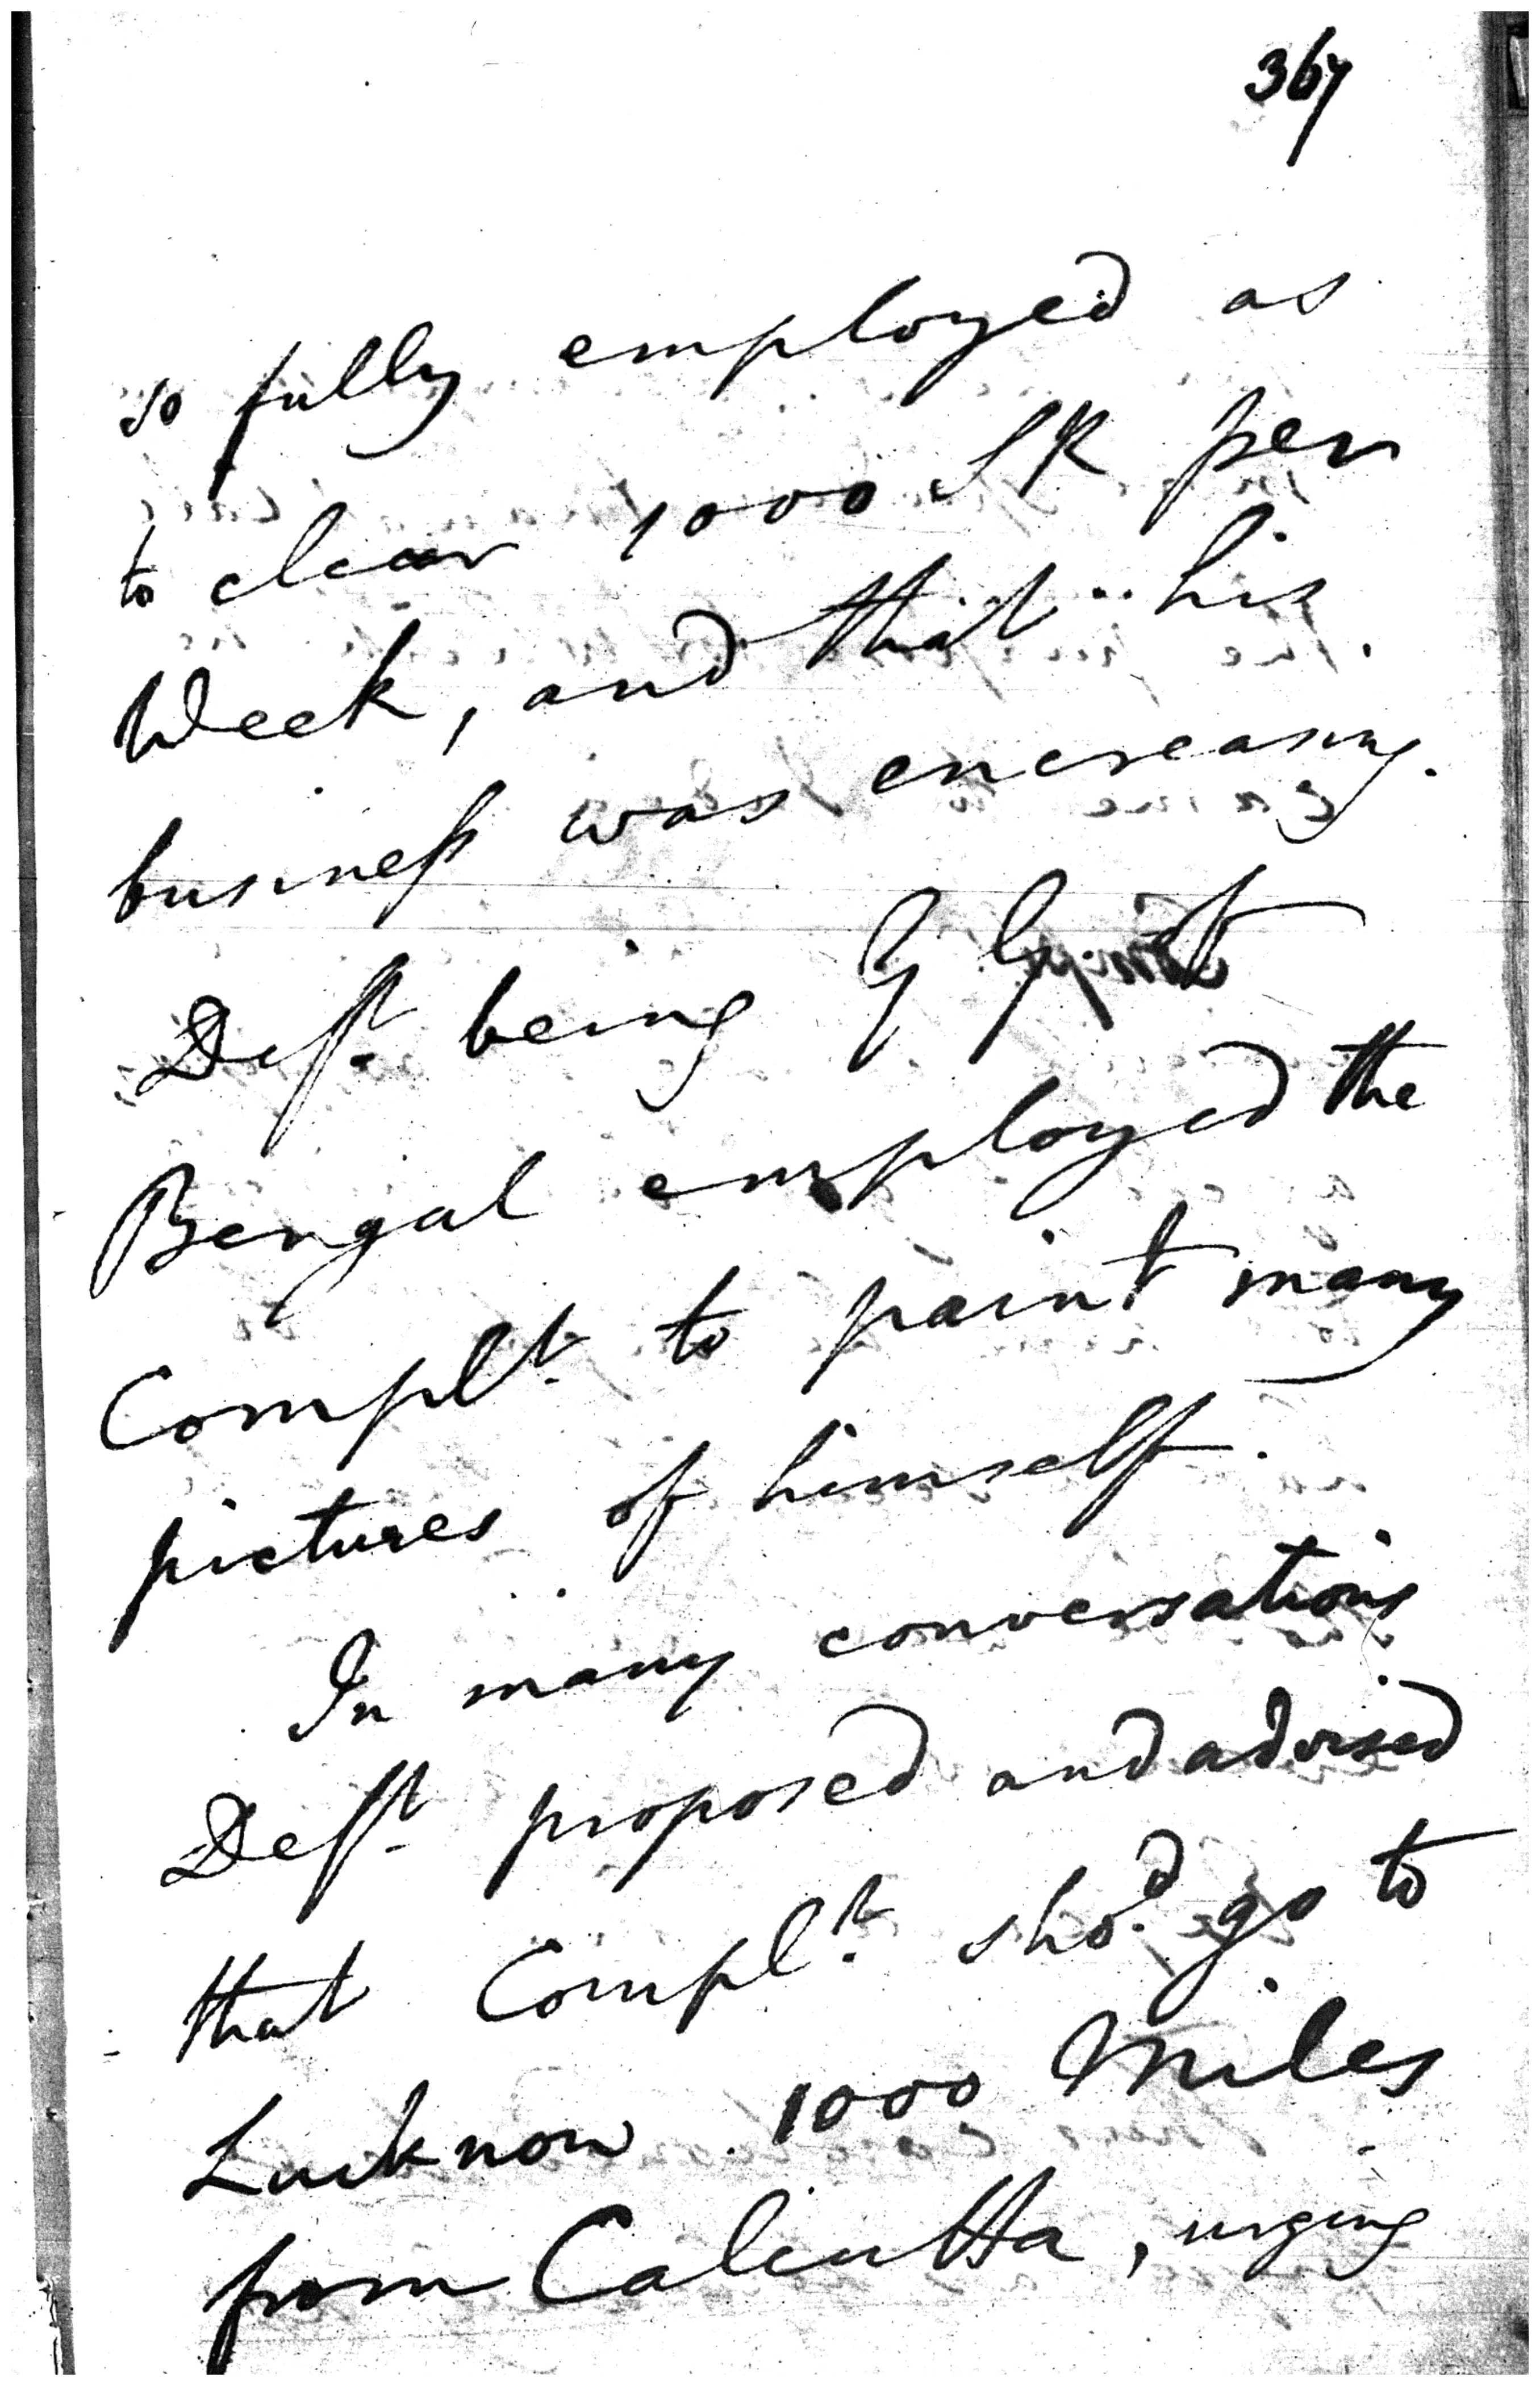 367
so fully employed as
to clear 1000 SR per
Week, and that his
business was encreasing.
Deft. being G G
Bengal employed the
Complt. to paint many
pictures of himself.
In many conversations
Deft. proposed and advised
that Complt. shod. go to
Lucknow 1000 Miles
from Calcutta, urging